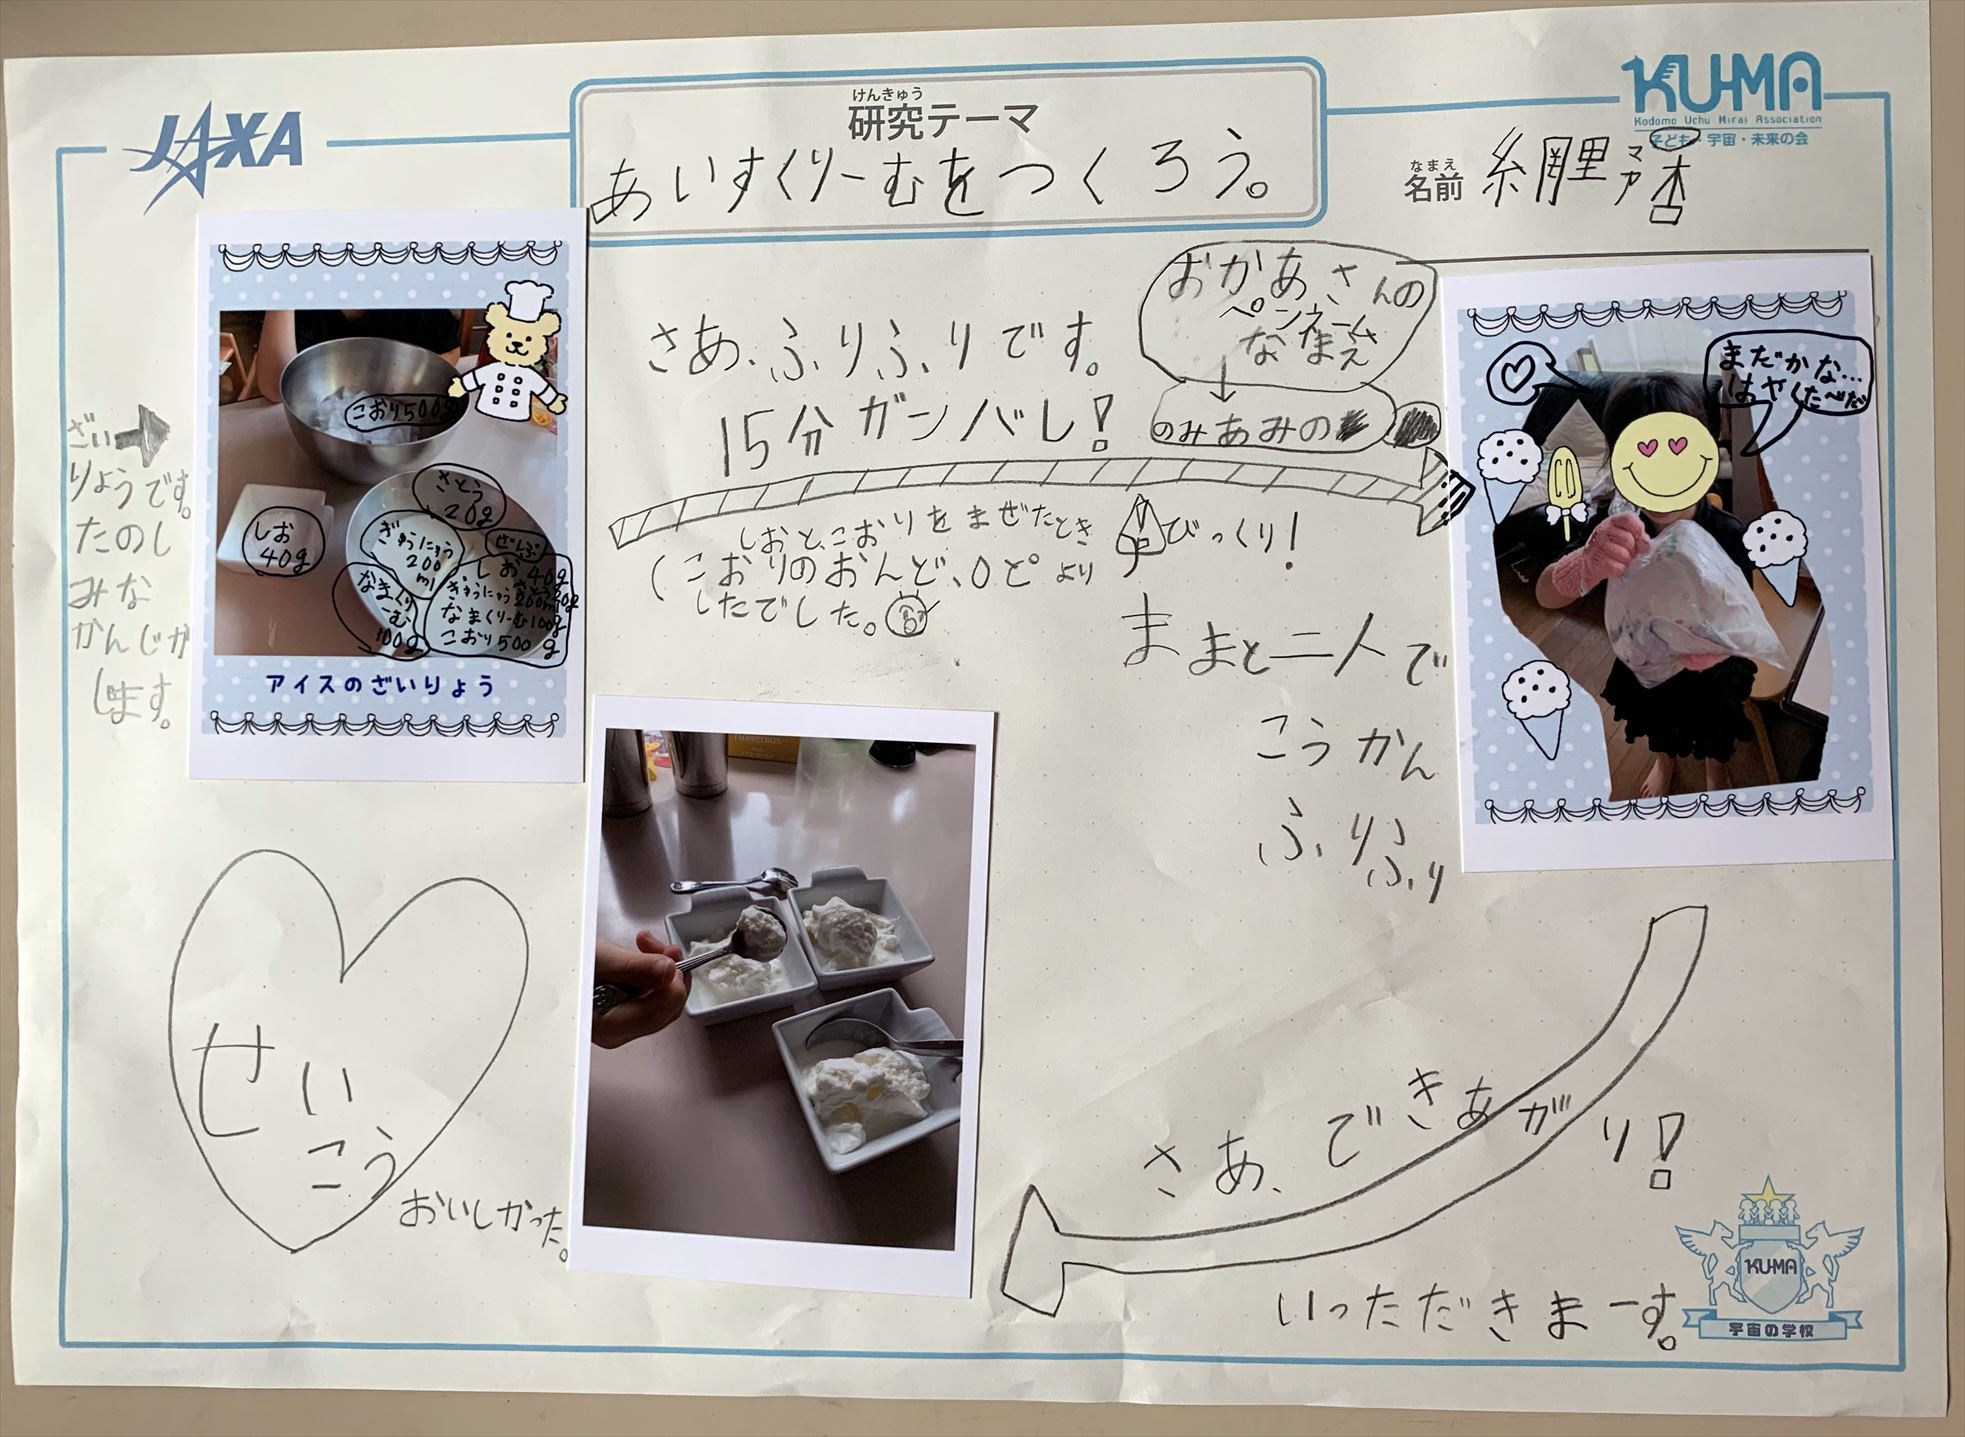 JAXA
けんきゅう
研究テーマ
あいすくりーむをつくろう。
KU-MA
Kodomo Uchu Mirai Association
子ども・宇宙・未来の会
なまえ
名前
ざい
りょうです。
たのし
みな
かんじが
します。
こおり500g
しお
40g
さとう
20g
ぎゅうにゅう
200
ml
なまくり
ーむ
100g
ぜんぶ
しお40g
ぎゅうにゅう200ml
なまくりーむ100g
こおり500g
アイスのざいりょう
さあ、ふりふりです。
15分ガンバレ!
おかあさんの
ペンネーム
なまえ
のみあみの
しおと、こおりをまぜたとき
(こおりのおんど、0どより
したでした。
びっくり!
ままと二人で
こうかん
ふりふり
まだかな…
はやくたべたい
さあ、できあがり!
いっただきまーす。
せい
こう
おいしかった。
KU-MA
宇宙の学校